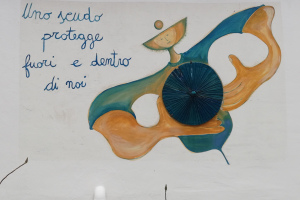 Uno scudo
protegge
fuori e dentro
di noi